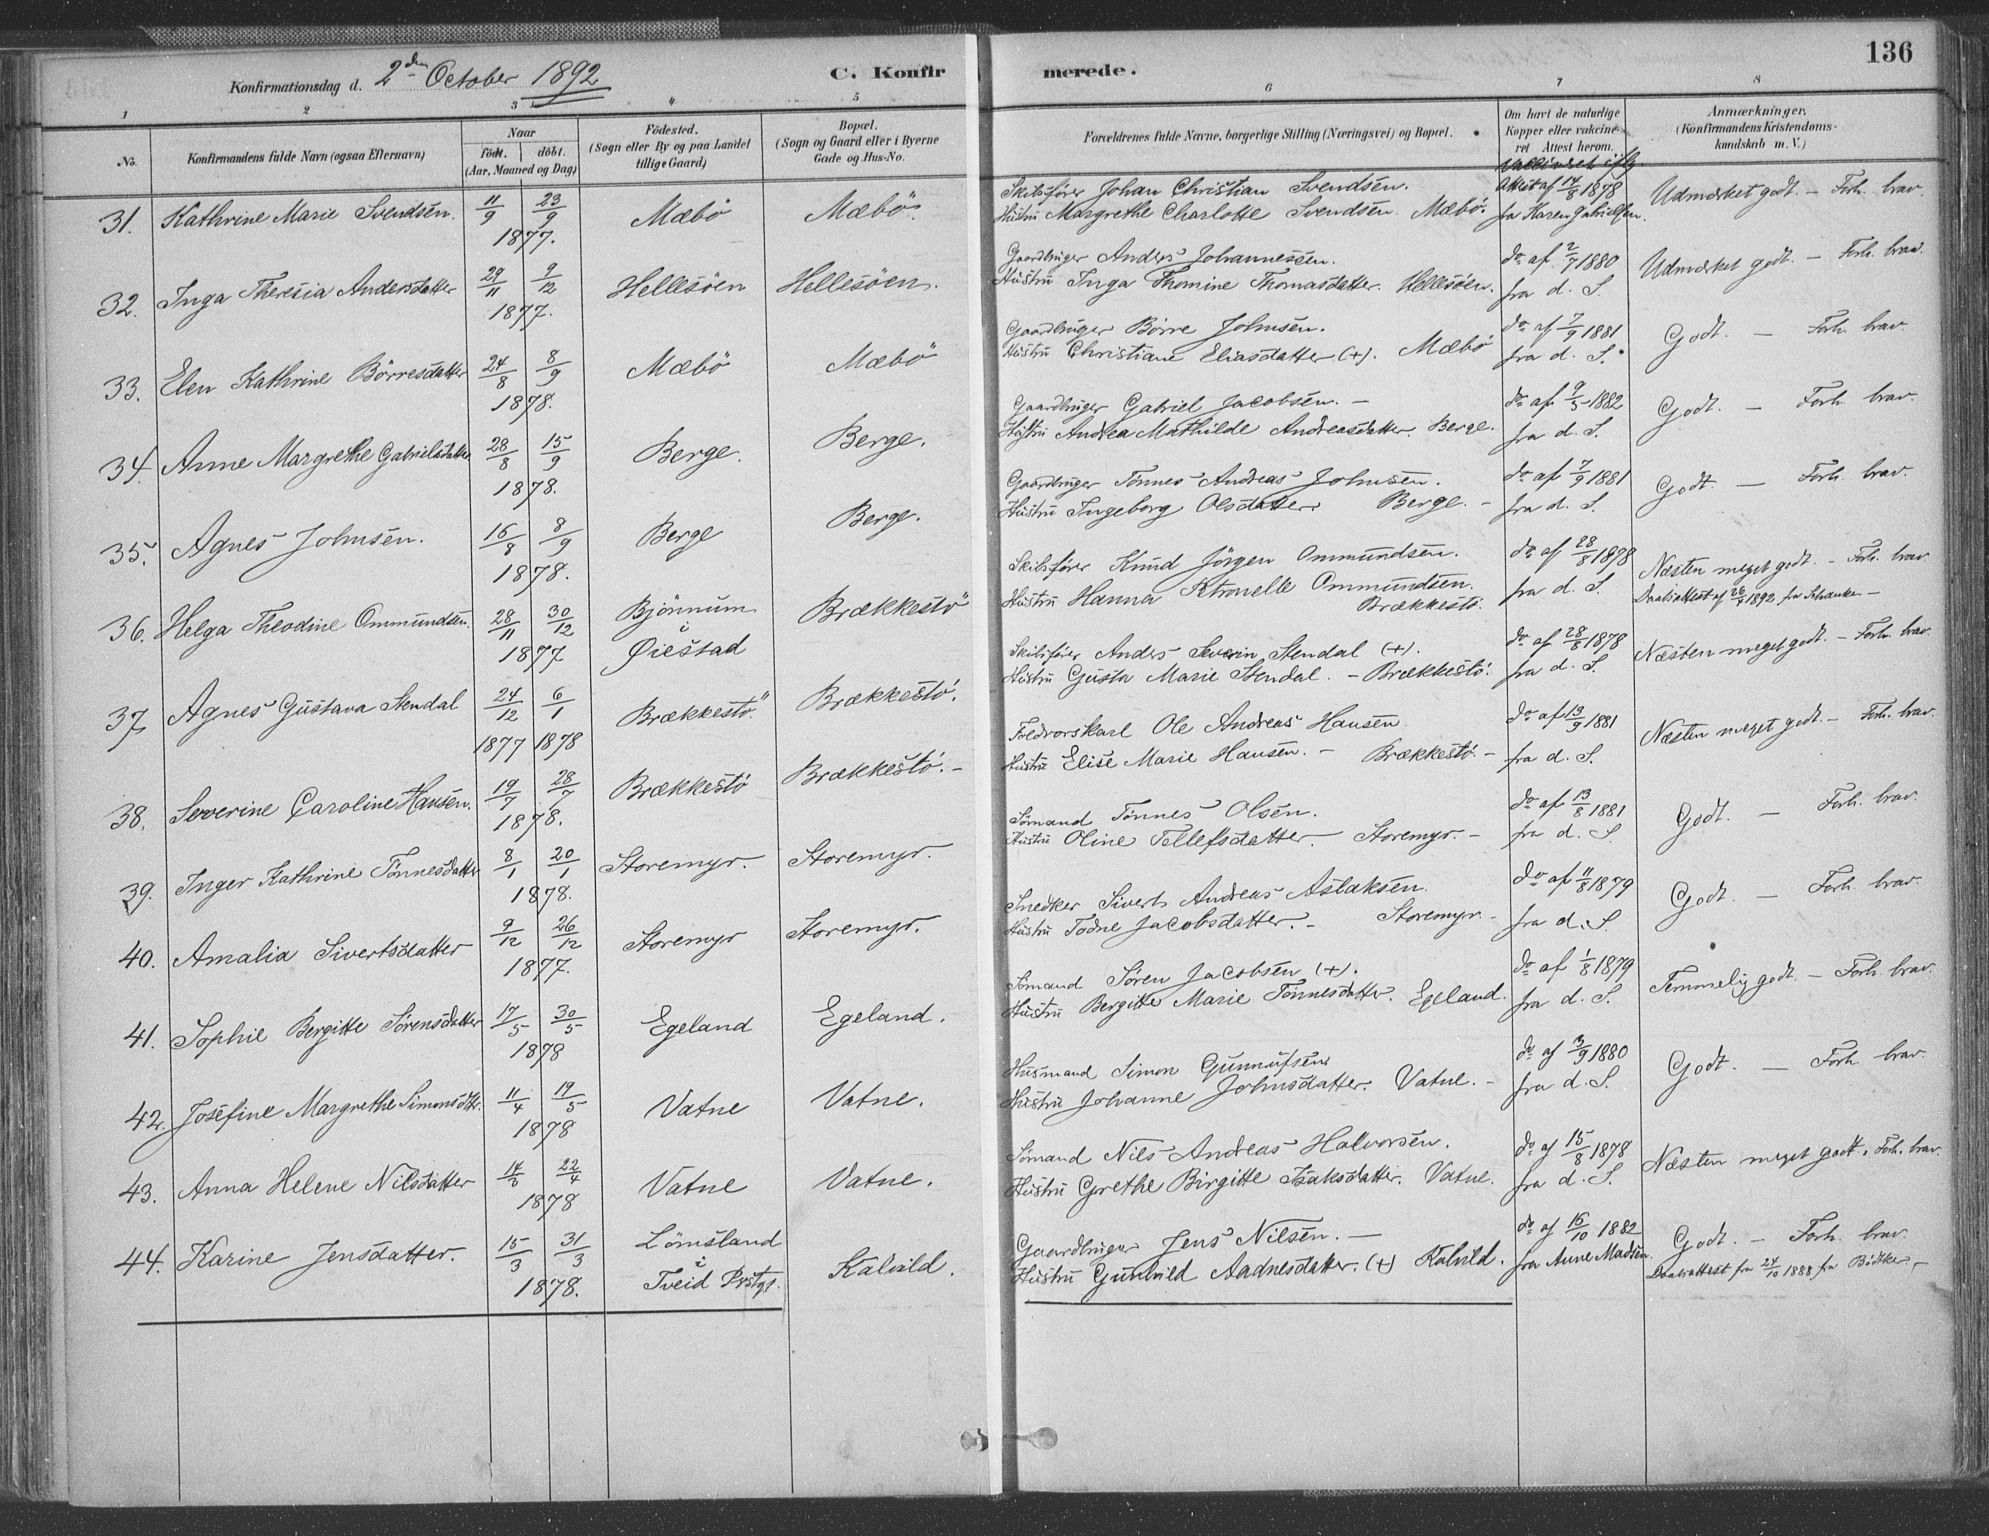 136
Konfirmationsdag d. 2den October 1892
C. Konfirmerede.
1 2 3 4 5 6 7 8
No.
Konfirmandens fulde Navn (ogsaa Efternavn)
Naar
født. døbt.
(Aar, Maaned og Dag)
Fødested.
(Sogn eller By og paa Landet
tillige Gaard)
Bopæl.
(Sogn og Gaard eller i Byerne
Gade og Hus-No.
Forældrenes fulde Navne, borgerlige Stilling (Næringsvei) og Bopæl.
Om havt de naturlige
Kopper eller vakcine-
ret Attest herom.
Anmærkninger.
(Konfirmandens Kristendoms-
kundskab m. V.)
31. Kathrine Marie Svendsen. 11/9 23/9 1877. Mæbö Mæbö.
Skibsfører Johan Christian Svendsen.
Hustru Margrethe Charlotte Svendsen. Mæbö.
Vakcineret iflg.
Attest af 14/8 1878
fra Karen Gabrielsen.
Udmærket godt. – Forh. brav.
32. Inga Theresia Andersdatter 29/11 9/12 1877. Hellesöen Hellesöen.
Gaardbruger Anders Johannessen.
Hustru Inga Thomine Thomasdatter. Hellesöen.
do af 2/7 1880
fra d. S.
Udmærket godt. – Forh. brav.
33. Elen Kathrine Börresdatter 24/8 8/9 1878. Mæbö Mæbö
Gaardbruger Börre Johnsen.
Hustru Christiane Eliasdatter (+). Mæbö
do af 7/9 1881
fra d. S.
Godt. – Forh. brav.
34. Anne Margrethe Gabrielsdatter 28/8 15/9 1878. Berge. Berge.
Gaardbruger Gabriel Jacobsen. –
Hustru Andrea Mathilde Andreasdatter. Berge.
do af 9/5 1882
fra d. S.
Godt. – Forh. brav.
35. Agnes Johnsen. 16/8 8/9 1878. Berge Berge.
Gaardbruger Tönnes Andreas Johnsen.
Hustru Ingeborg Olsdatter Berge. –
do af 7/9 1881
fra d. S.
Godt – Forh. brav.
36. Helga Theodine Ommundsen. 28/11 30/12 1877 Bjönnum i Øiestad Brækkestö
Skibsfører Knud Jörgen Ommundsen.
Hustru Hanna Petronelle Ommundsen.
Brækkestö.
do af 28/8 1878
fra d. S.
Næsten meget godt. – Forh. brav
Daabsattest af 26/4 1892 fra Schanke –
37. Agnes Gustava Stendal 24/12 1877 6/1 1878 Brækkestö. Brækkestö.
Skibsfører Anders Severin Stendal (+).
Hustru Gusta Marie Stendal. – Brækkestö.
do af 28/8 1878
fra d. S.
Næsten meget godt. – Forh. brav.
38. Severine Caroline Hansen. 19/7 28/7 1878. Brækkestö Brækkestö. –
Ole Andreas Hansen.
Hustru Elise Marie Hansen. – Brækkestö. –
do af 13/9 1881
fra d. S.
Næsten meget godt. – Forh. brav.
39. Inger Kathrine Tönnesdatter 8/1 20/1 1878. Storemyr. Storemyr.
Sömand Tönnes Olsen.
Hustru Oline Tellefsdatter. Storemyr. –
do af 13/8 1881
fra d. S.
Godt. – Forh. brav.
40. Amalia Sivertsdatter 9/12 26/12 1877. Storemyr Storemyr.
Snedker Sivert Andreas Aslaksen.
Hustru Todne Jacobsdatter. – Storemyr. –
do af 11/8 1879
fra d. S.
Godt. – Forh. brav.
41. Sophie Bergitte Sörensdatter 17/5 30/5 1878 Egeland Egeland.
Sömand Sören Jacobsen (+).
Hustru Bergitte Marie Tönnesdatter. Egeland.
do af 1/8 1879
fra d. S.
Temmelig godt. – Forh. brav.
42. Josefine Margrethe Simonsdtr. 11/4 19/5 1878 Vatne Vatne.
Husmand Simon Gunnufsen
Hustru Johanne Johnsdatter. Vatne. –
do af 13/9 1880
fra d. S.
Godt. – Forh. brav.
43. Anna Helene Nilsdatter 22/4 1878 Vatne Vatne.
Sömand Nils Andreas Halvorsen.
Hustru Grethe Birgitte Isaksdatter. Vatne.
do af 15/8 1878
fra d. S.
Næsten meget godt. Forh. brav.
44. Karine Jensdatter. 15/3 31/3 1878. Lömsland i Tveid Prstgj. Kalvild.
Gaardbruger Jens Nilsen. –
Hustru Gunhild Aadnesdatter. (+) Kalvild.
do af 16/10 1882
fra Anne Madsen.
Godt. – Forh. brav.
Daabsattest fra 24/10 1888 fra Bödtker. –